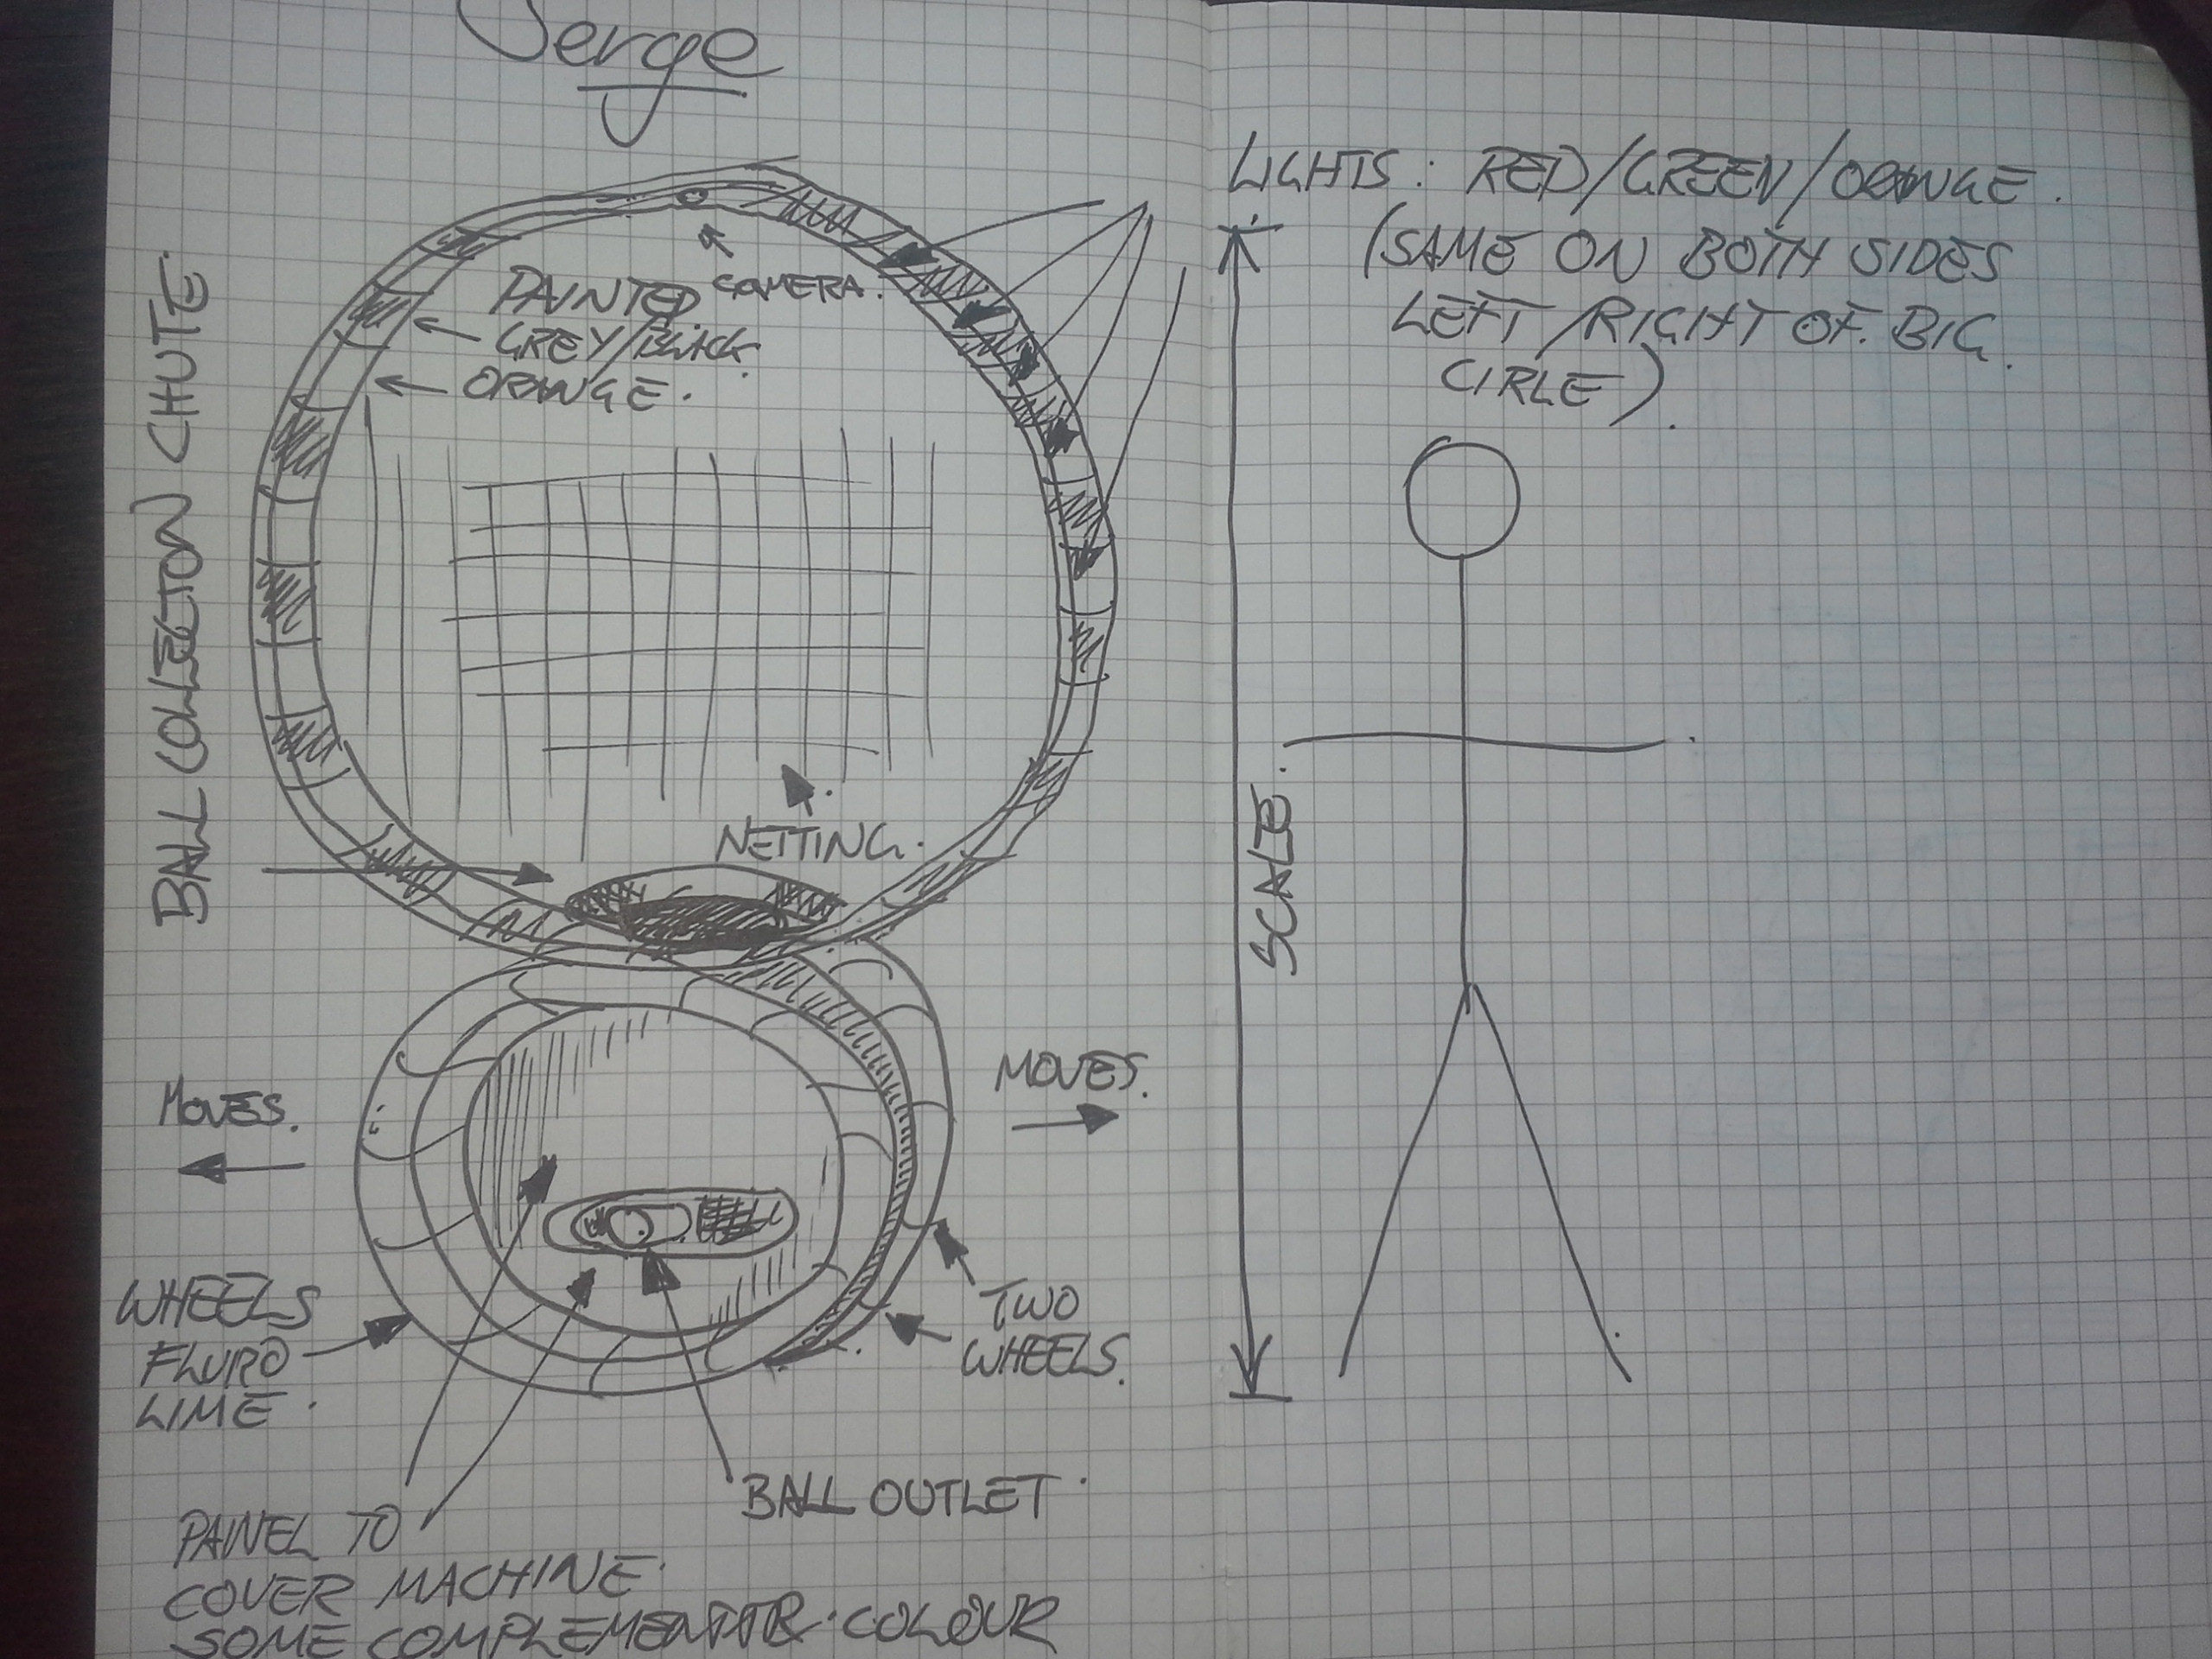 Serge
LIGHTS: RED/GREEN/ORANGE.
(SAME ON BOTH SIDES
LEFT/RIGHT OF BIG.
CIRLE).
CAMERA.
PAINTED
GREY/BLACK.
ORANGE.
BALL COLLECTON CHUTE
NETTING.
SCALE.
MOVES.
MOVES.
WHEELS
FLURO
LIME.
TWO
WHEELS.
BALL OUTLET.
PANEL TO
COVER MACHINE.
SOME COLOUR